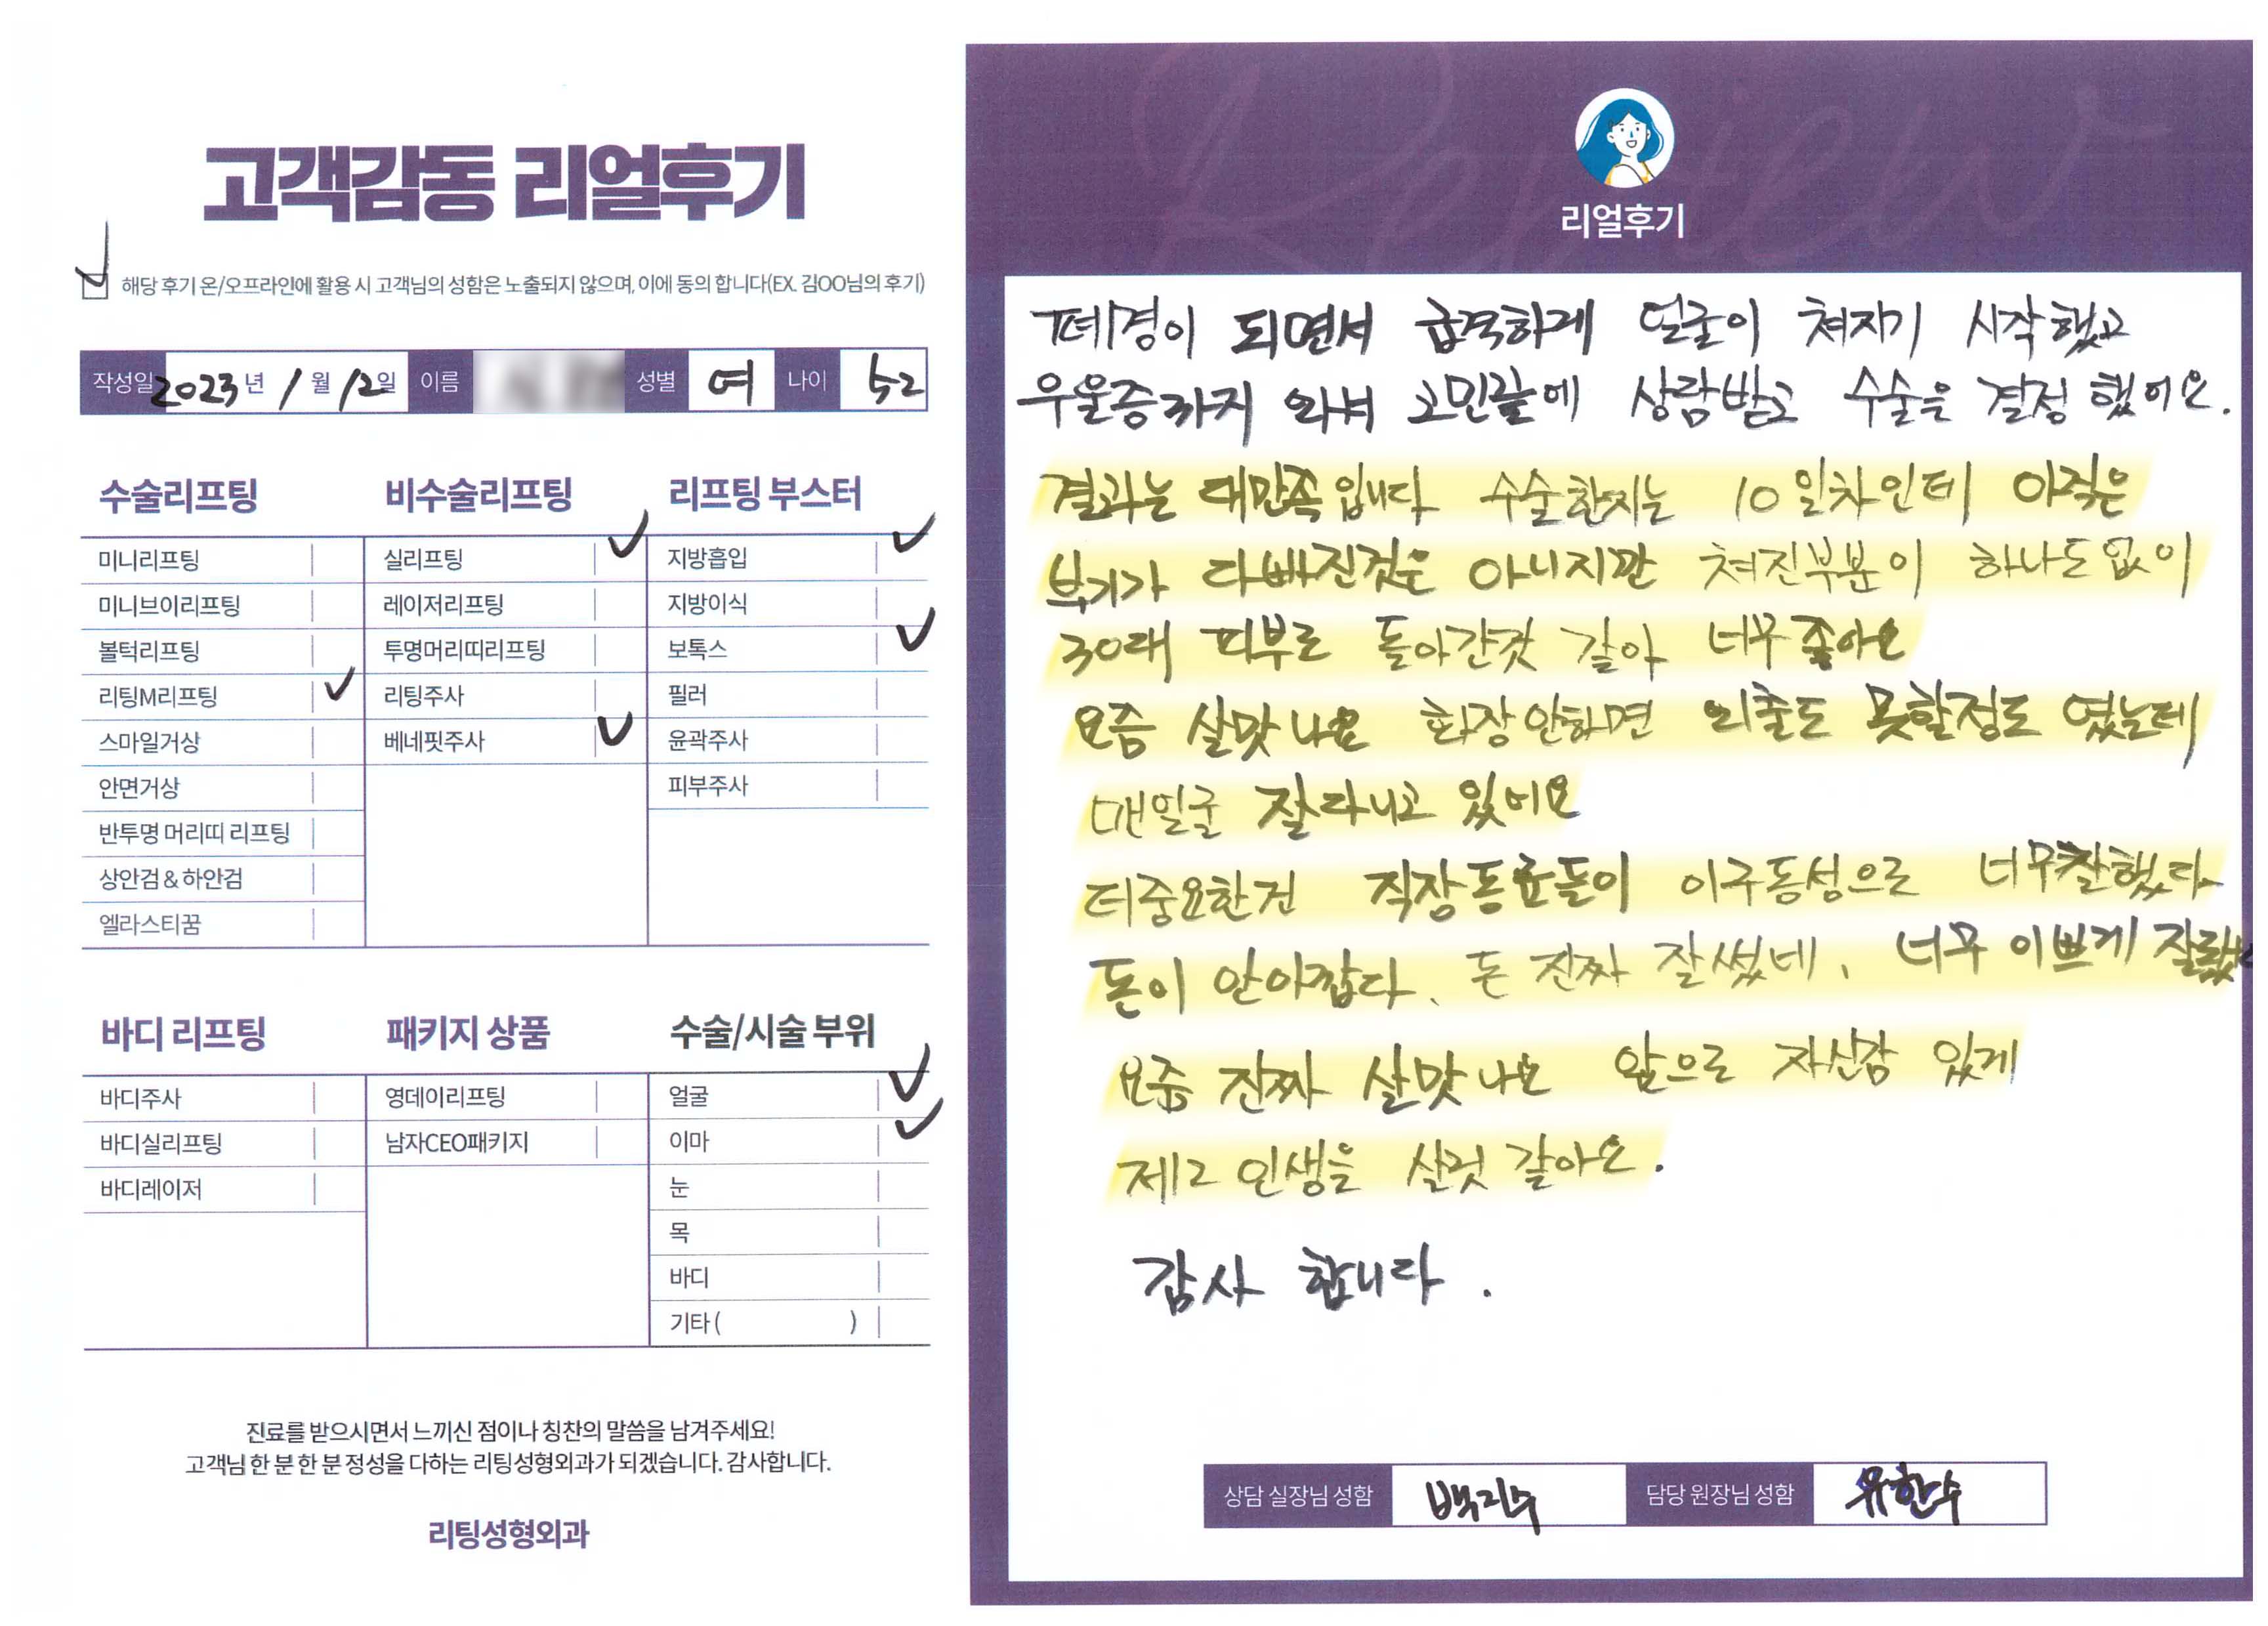 고객감동 리얼후기
해당 후기 온/오프라인에 활용 시 고객님의 성함은 노출되지 않으며, 이에 동의 합니다(EX. 김OO님의 후기)
작성일 2023년 1월 12일 이름 성별 여 나이 52
수술리프팅
미니리프팅
미니브이리프팅
볼턱리프팅
리팅M리프팅
스마일거상
안면거상
반투명 머리띠 리프팅
상안검 & 하안검
엘라스티꿈
비수술리프팅
실리프팅
레이저리프팅
투명머리띠리프팅
리팅주사
베네핏주사
리프팅 부스터
지방흡입
지방이식
보톡스
필러
윤곽주사
피부주사
바디 리프팅
바디주사
바디실리프팅
바디레이저
패키지 상품
영데이리프팅
남자CEO패키지
수술/시술 부위
얼굴
이마
눈
목
바디
기타 ( )
진료를 받으시면서 느끼신 점이나 칭찬의 말씀을 남겨주세요!
고객님 한 분 한 분 정성을 다하는 리팅성형외과가 되겠습니다. 감사합니다.
리팅성형외과
Review
리얼후기
폐경이 되면서 급격하게 얼굴이 쳐지기 시작했고
우울증까지 와서 고민끝에 상담받고 수술을 결정 했어요.
결과는 대만족 입니다 수술한지는 10일차인데 아직은
부기가 다빠진것은 아니지만 쳐진부분이 하나도 없이
30대 피부로 돌아간것 같아 너무 좋아요
요즘 살맛 나요 화장안하면 외출도 못할정도 였는데
매일굴 잘다니고 있어요
더중요한건 직장동료들이 이구동성으로 너무잘했다
돈이 안아깝다. 돈 진짜 잘썼네, 너무 이쁘게
요즘 진짜 살맛 나요 앞으로 자신감 있게
제2 인생을 살것 같아요.
감사 합니다.
상담 실장님 성함 백지수 담당 원장님 성함 유한수